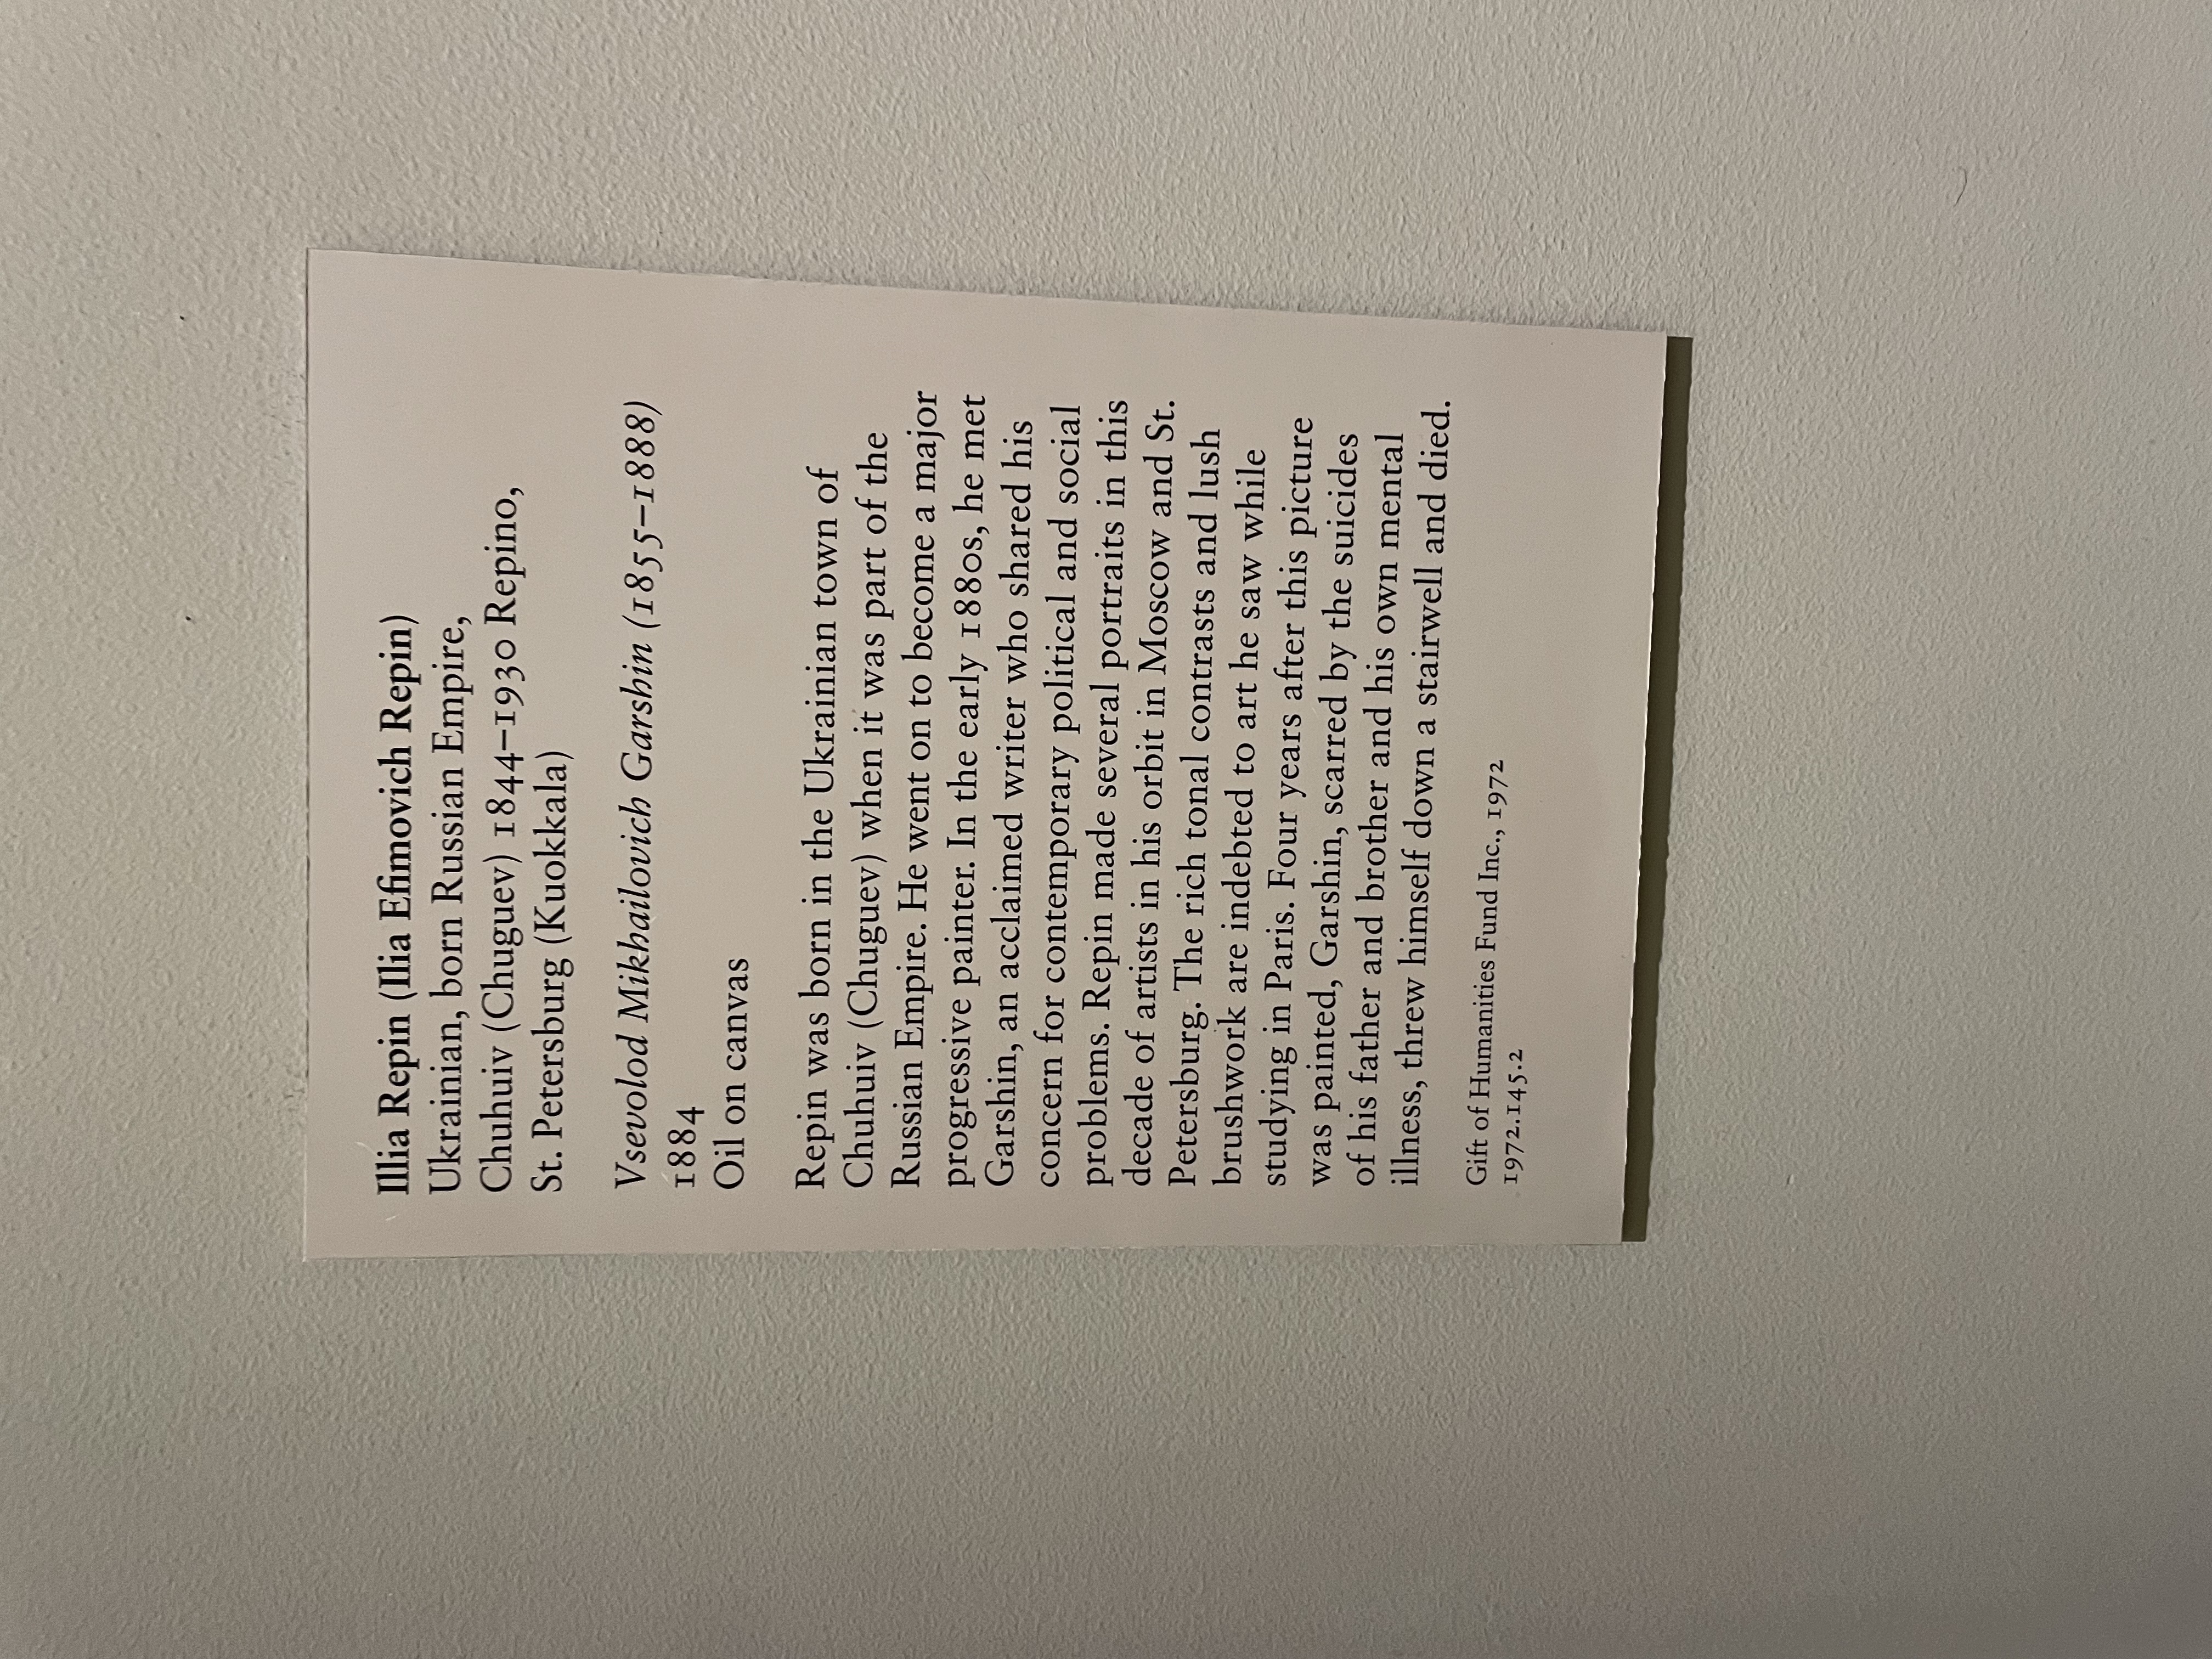 Illia Repin (Ilia Efimovich Repin)
Ukrainian, born Russian Empire,
Chuhuiv (Chuguev) 1844–1930 Repino,
St. Petersburg (Kuokkala)
Vsevolod Mikhailovich Garshin (1855–1888)
1884
Oil on canvas
Repin was born in the Ukrainian town of
Chuhuiv (Chuguev) when it was part of the
Russian Empire. He went on to become a major
progressive painter. In the early 1880s, he met
Garshin, an acclaimed writer who shared his
concern for contemporary political and social
problems. Repin made several portraits in this
decade of artists in his orbit in Moscow and St.
Petersburg. The rich tonal contrasts and lush
brushwork are indebted to art he saw while
studying in Paris. Four years after this picture
was painted, Garshin, scarred by the suicides
of his father and brother and his own mental
illness, threw himself down a stairwell and died.
Gift of Humanities Fund Inc., 1972
1972.145.2